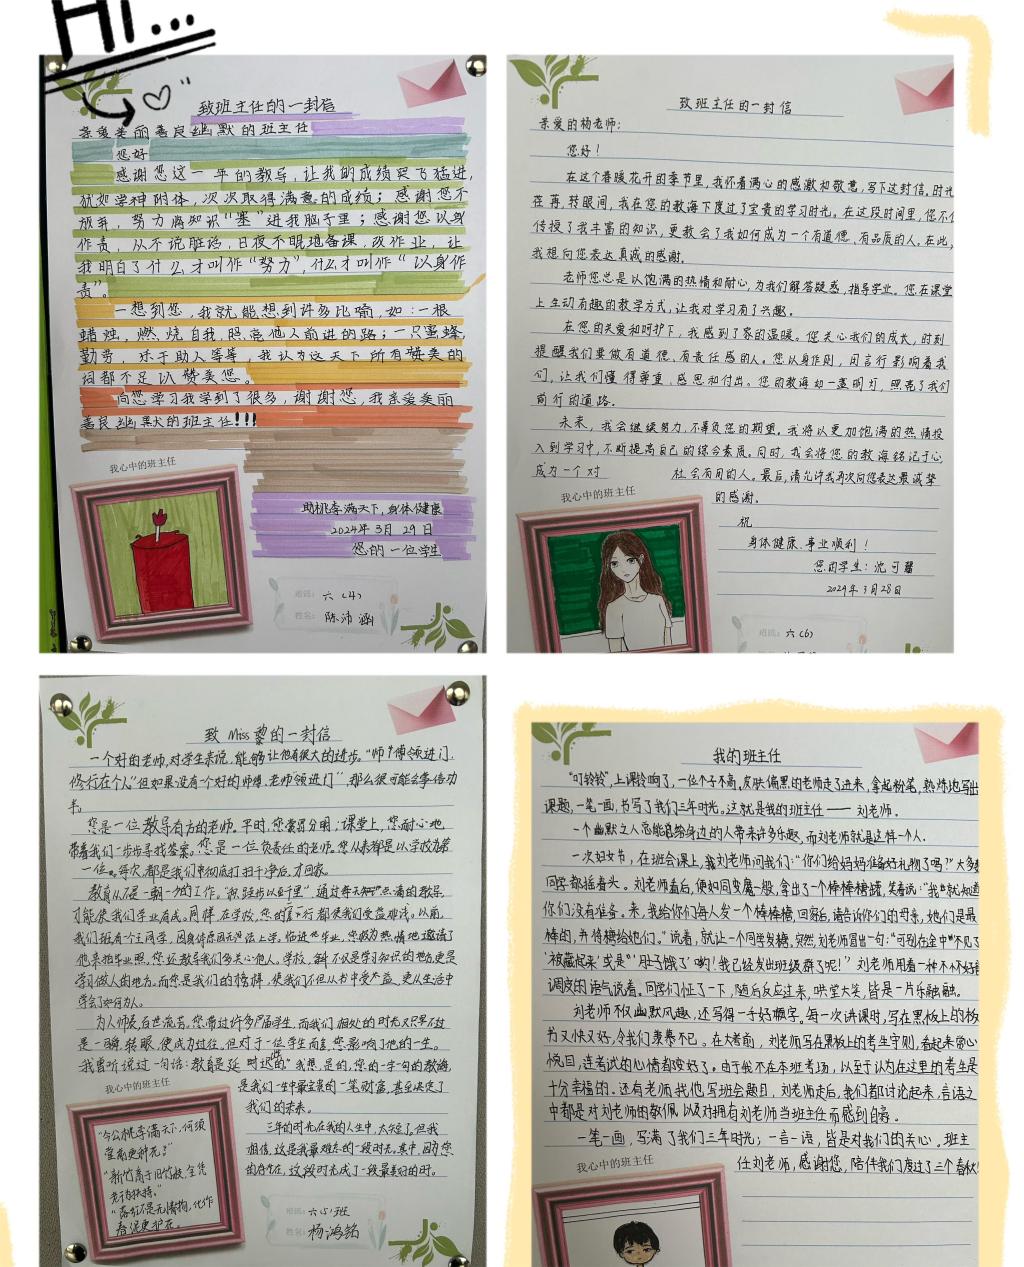 Hi...
致班主任的一封信
亲爱美丽善良幽默的班主任
您好
感谢您这一年的教导，让我的成绩突飞猛进，
犹如学神附体，次次取得满意的成绩；感谢您不
放弃，努力将知识“塞”进我脑子里；感谢您以身
作责，从不说脏话，日夜不眠地备课，改作业，让
我明白了什么才叫作“努力”，什么才叫作“以身作
责”。
一想到您，我就能想到许多比喻，如：一根
蜡烛，燃烧自我，照亮他人前进的路；一只蜜蜂，
勤劳，乐于助人等等，我认为这天下所有赞美的
词都不足以赞美您。
向您学习我学到了很多，谢谢您，我亲爱美丽
善良幽默的班主任!!!
我心中的班主任
助桃李满天下，身体健康
2024年3月29日
您的一位学生
班级：六(4)
姓名：陈沛涵
致班主任的一封信
亲爱的杨老师：
您好！
在这个春暖花开的季节里，我怀着满心的感激和敬意，写下这封信。时光
荏苒，转眼间，我在您的教海下度过了宝贵的学习时光。在这段时间里，您不仅
传授了我丰富的知识，更教会了我如何成为一个有道德、有品质的人。在此，
我想向您表达真诚的感谢。
老师您总是以饱满的热情和耐心，为我们解答疑惑，指导学业。您在课堂
上生动有趣的教学方式，让我对学习有了兴趣。
在您的关爱和呵护下，我感到了家的温暖。您关心我们的成长，时刻
提醒我们要做有道德、有责任感的人。您以身作则，用言行影响着我
们，让我们懂得尊重、感恩和付出。您的教海如一盏明灯，照亮了我们
前行的道路。
未来，我会继续努力，不辜负您的期望。我将以更加饱满的热情投
入到学习中，不断提高自己的综合素质。同时，我会将您的教海铭记于心
成为一个对 社会有用的人。最后，请允许我再次向您表达最诚挚
的感谢。
我心中的班主任
祝
身体健康、事业顺利！
您的学生：沈可馨
2024年3月28日
班级：六(6)
致 Miss 黎的一封信
一个好的老师，对学生来说，能够让他有很大的进步。“师傅领进门，
修行在个人”但如果没有一个好的师傅、老师领进门”，那么很可能会事倍功
半。
您是一位教导有方的老师。平时，您赏罚分明，课堂上，您耐心地
带着我们一步步寻找答案。您是一位负责任的老师。您从来都是以学校为第
一位。每次都是我们班彻底打扫干净后，才回家。
教育从不是一朝一夕的工作。“积跬步以至千里”通过每天知识点滴的教导，
才能使我们学业有成。同样在学校，您的言行都使我们受益难浅。以前，
我们班有个主同学，因身体原因无法上学。临近毕业，您极为热情地邀请了
他来拍毕业照。您还教导我们多关心他人。学校，不仅是学习知识的地方更是
学习做人的地方。而您是我们的榜样，使我们不但从书中受益，更从生活中
学会了如何为人。
为人师表，百世流芳。您带过许多届学生，而我们相处的时光又只不过
是一瞬，转眼，便成为过往，但对于一位学生而言，您影响了他的一生。
我曾听说过一句话：教育是延时的。“我想，是的，您的一字一句的教诲，
是我们一生中最宝贵的一笔财富，甚至决定了
我们的未来。
三年的时光在我的人生中，太短了，但我
相信，这是我最难忘的一段时光。其中，因为您
的存在，这段时光成了一段最美好的时。
我心中的班主任
“令公桃李满天下，何须
堂前更种花？”
“新竹高于旧竹枝，全凭
老干为扶持。”
“落红不是无情物，化作
春泥更护花。
班级：六(5)班
姓名：杨鸿铭
我的班主任
“叮铃铃”，上课铃响了，一位个子不高，皮肤偏黑的老师走了进来，拿起粉笔，熟练地写出
课题，一笔一画，书写了我们三年时光。这就是我的班主任——刘老师。
一个幽默之人总能给身边的人带来许多乐趣，而刘老师就是这样一个人。
一次妇女节，在班会课上，刘老师问我们：“你们给妈妈准备好礼物了吗？”大多数
同学都摇着头。刘老师看后，便如同变魔一般，拿出了个棒棒糖罐，笑着说：“我就知道
你们没有准备。来，我给你们每人发一个棒棒糖，回家后，请告诉你们的母亲，她们是最
棒的，并将糖给她们。”说着，就让一个同学发糖。突然，刘老师冒出一句：“可别在途中“不见了
‘被藏起来’或是“‘肚子饿了’哟！我已经发出班级群了呢！”刘老师用着一种不怀好意
调皮的语气说着。同学们怔了一下，随后反应过来，哄堂大笑，皆是一片乐融融。
刘老师不仅幽默风趣，还写得一手好粉字。每一次讲课时，写在黑板上的板
书又快又好，令我们羡慕不已。在大考前，刘老师写在黑板上的考生守则，看起来赏心
悦目，连考试的心情都变好了。由于我不在本班考场，以至于认为在这里的考生是
十分幸福的。还有老师找他写班会题目，刘老师走后，我们都讨论起来，言语之
中都是对刘老师的敬佩以及对拥有刘老师当班主任而感到自豪。
一笔一画，写满了我们三年时光；一言一语，皆是对我们的关心。班主
任刘老师，感谢您，陪伴我们度过了三个春秋！
我心中的班主任